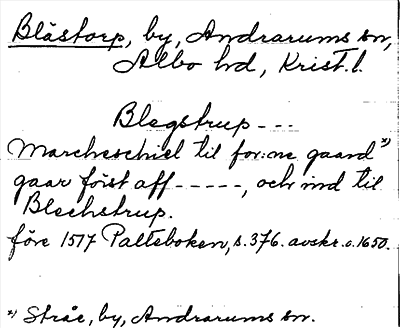 Blästorp, by, Andrarums sn,
Albo hd, Krist.l.
Blegstrup ---
Marcheschiel til for:ne gaard x)
gaar först aff -----, och ind til
Blechstrup.
före 1517 Palteboken, s. 376. avskr. c. 1650.
x) Stråe, by, Andrarums sn.